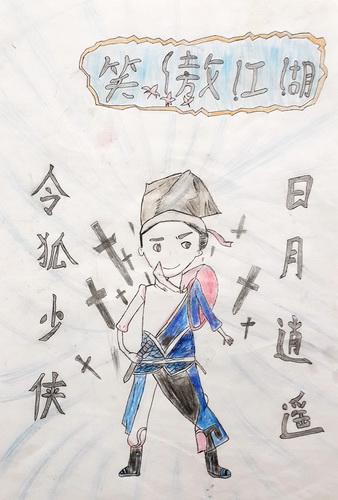 笑傲江湖
日月逍遥
令狐少侠